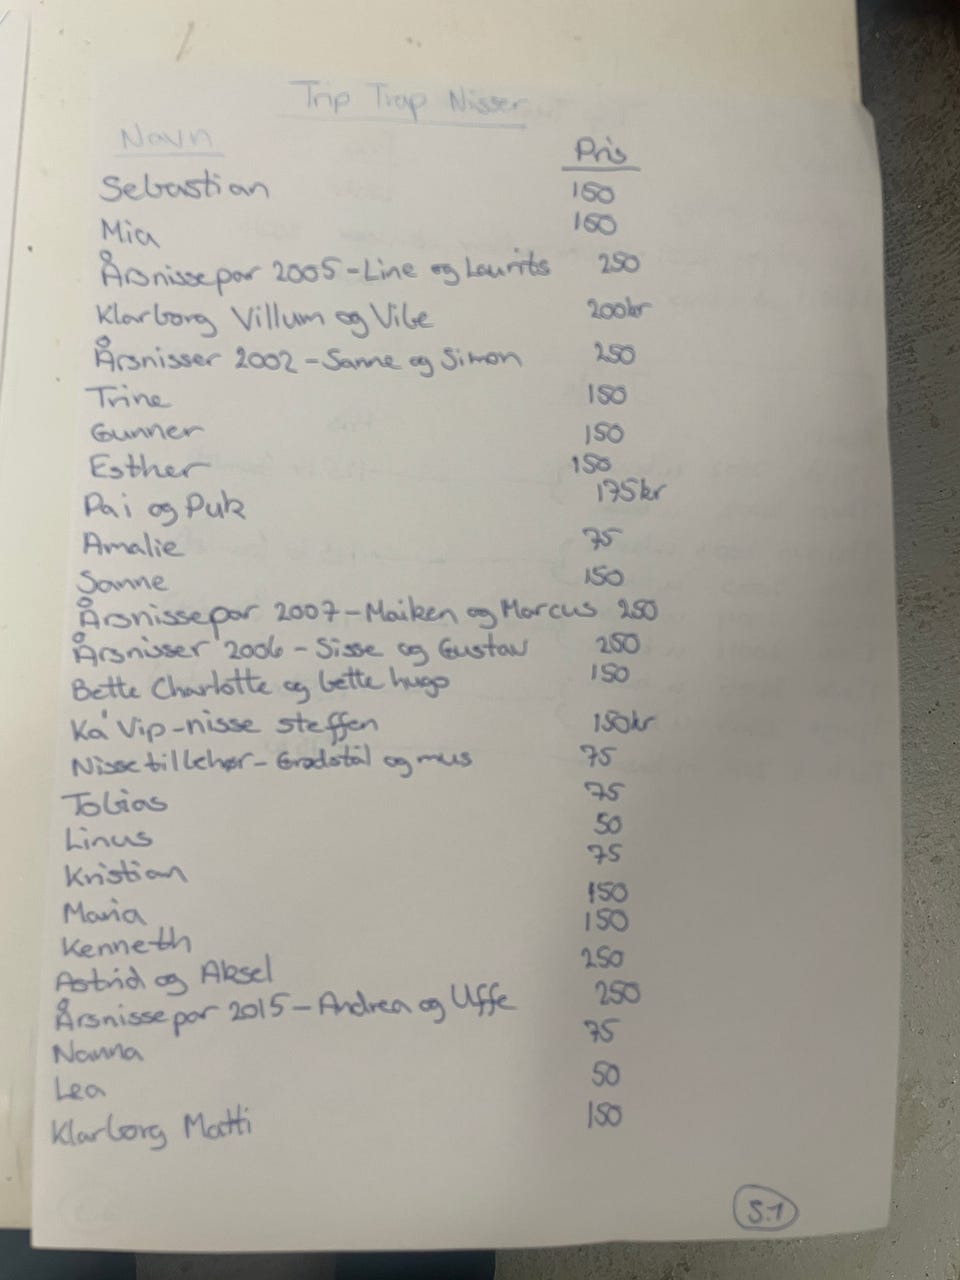 Trip Trap Nisser
Navn Pris
Sebastian 150
Mia 150
Årsnissepar 2005-Line og Laurits 250
Klarborg Villum og Vibe 200kr
Årsnisser 2002-Sanne og Simon 250
Trine 150
Gunner 150
Esther 150
Pai og Puk 175kr
Amalie 75
Sanne 150
Årsnissepar 2007-Maiken og Marcus 250
Årsnisser 2006-Sisse og Gustav 250
Bette Charlotte og bette hugo 150
Ka' Vip-nisse steffen 150kr
Nissetilbehør-Grødstål og mus 75
Tobias 75
Linus 50
Kristian 75
Maria 150
Kenneth 150
Astrid og Aksel 250
Årsnissepar 2015-Andrea og Uffe 250
Nanna 75
Lea 50
Klarborg Matti 150
S.1